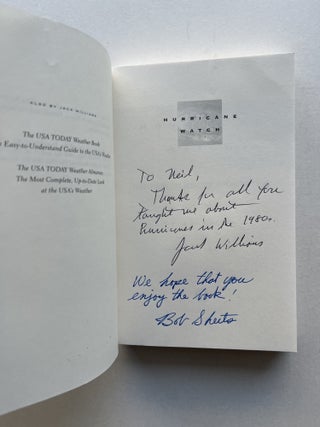 ALSO BY JACK WILLIAMS
The USA TODAY Weather Book
Easy-to-Understand Guide to the USA's Weather
The USA TODAY Weather Almanac
The Most Complete, Up-to-Date Look
at the USA's Weather
HURRICANE
WATCH
To Neil,
Thanks for all you
taught me about
hurricanes in the 1980s.
Jack Williams
We hope that you
enjoy the book!
Bob Sheets